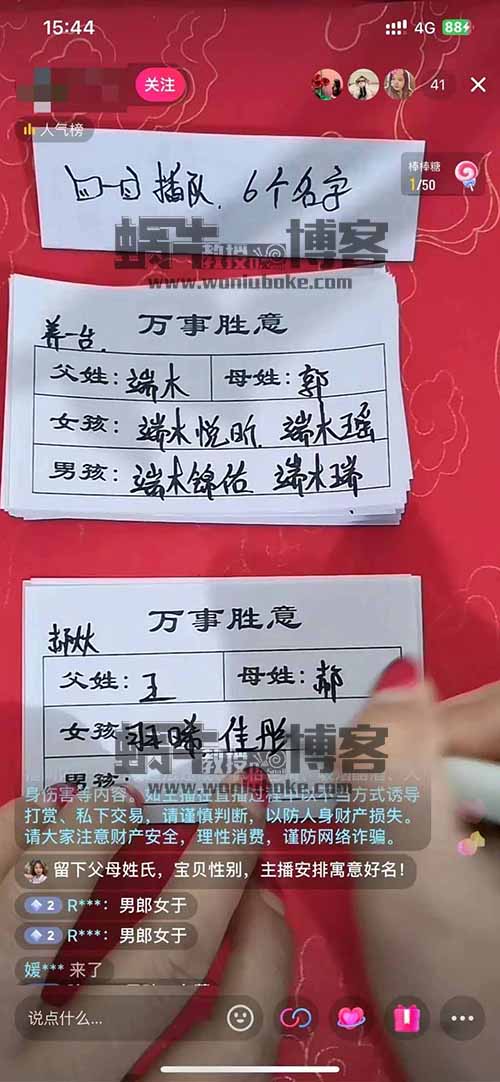 15:44
4G 88
关注
41
人气榜
棒棒糖
1/50
口一口插队, 6个名字
蜗牛博客
教授
www.woniuboke.com
万事胜意
父姓: 端木 母姓: 郭
女孩: 端木悦昕 端木瑶
男孩: 端木锦佑 端木瑞
万事胜意
父姓: 王 母姓: 郝
女孩 羽晞 佳彤
蜗牛博客
教授
男孩:
身伤害等内容。如主播在直播过程中以不当方式诱导
打赏、私下交易，请谨慎判断，以防人身财产损失。
请大家注意财产安全，理性消费，谨防网络诈骗。
留下父母姓氏，宝贝性别，主播安排寓意好名！
2 R***：男郎女于
2 R***：男郎女于
媛*** 来了
说点什么...